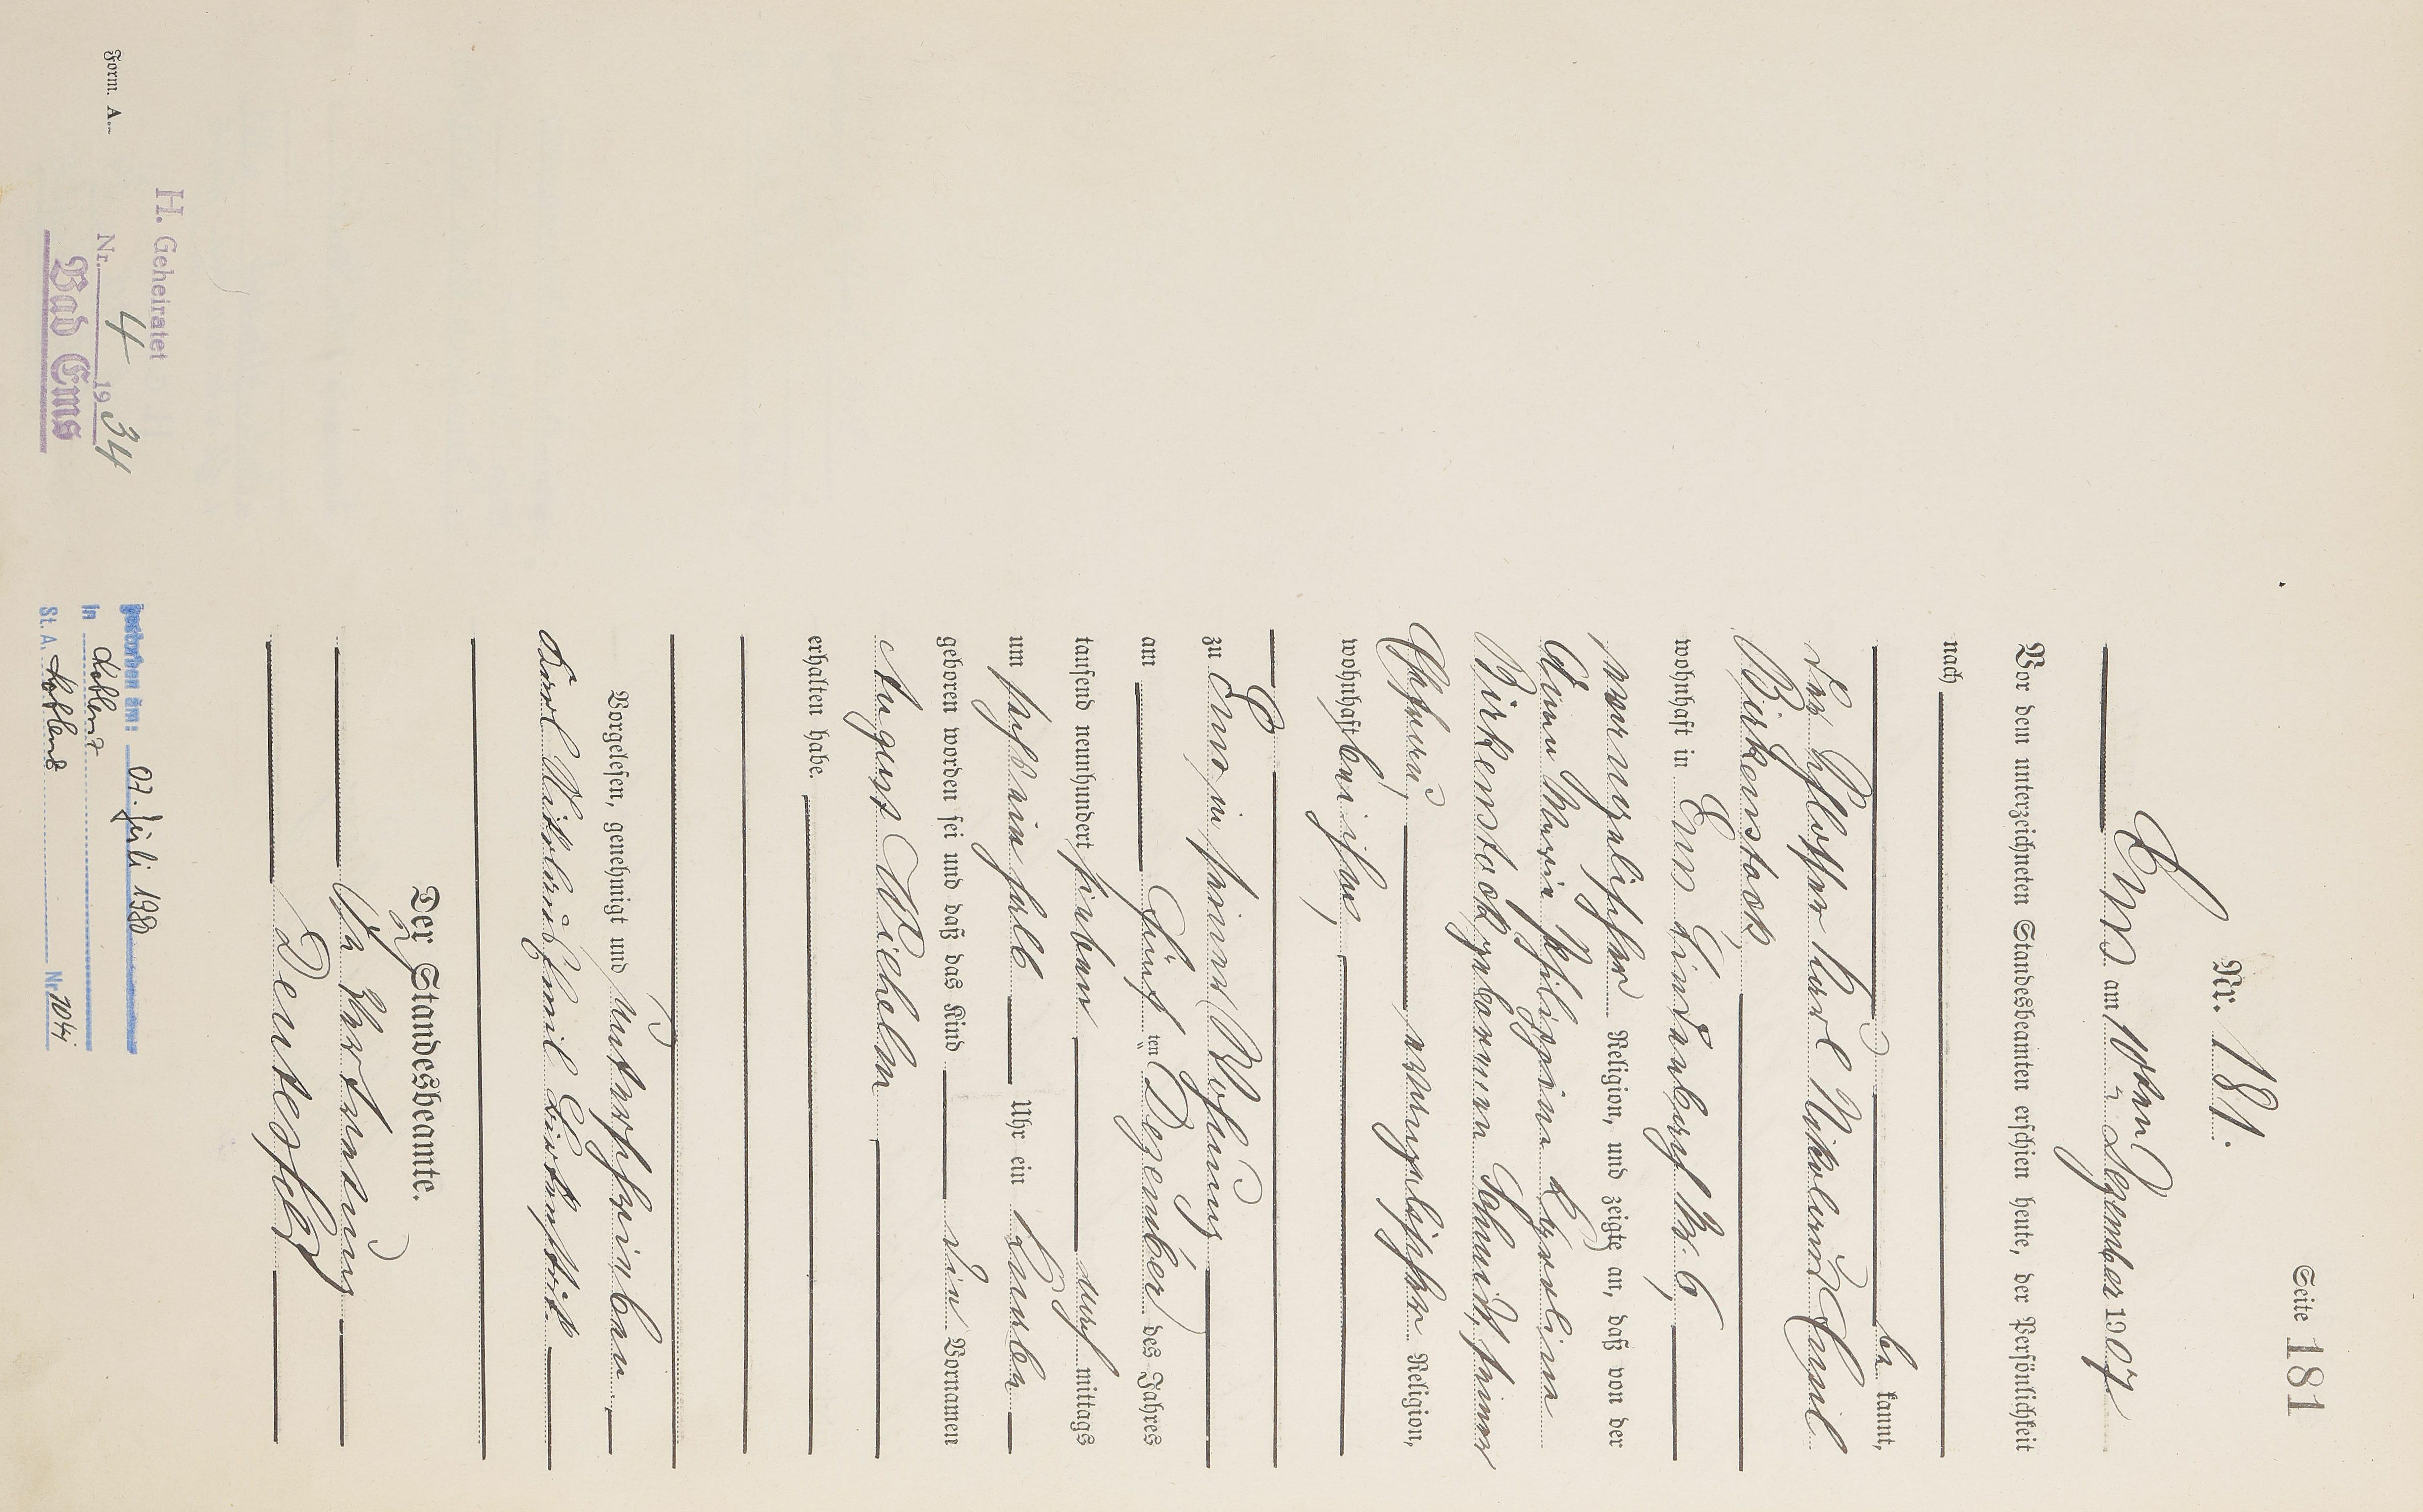 Seite 181
Nr. 181.
Ems am 10ten Dezember 1907.
Vor dem unterzeichneten Standesbeamten erschien heute, der Persönlichkeit
nach
be kannt,
der Schlosser Karl Nikolaus Emil
Birkenstock
wohnhaft in Ems Lindenbach Nr. 6
evangelischer Religion, und zeigte an, daß von der
Anna Maria Philippine Karoline
Birkenstock geborenen Schmidt, seiner
Ehefrau, evangelischer Religion,
wohnhaft bei ihm,
zu Ems in seiner Wohnung
am fünf ten Dezember des Jahres
tausend neunhundert sieben nach mittags
um sechs ein halb Uhr ein Knabe
geboren worden sei und daß das Kind die Vornamen
August Wilhelm
erhalten habe.
Vorgelesen, genehmigt und unterschrieben
Karl Nikolaus Emil Birkenstock
Der Standesbeamte.
In Vertretung
Form. A.
H. Geheiratet
Nr. 4 1934
Bad Ems
gestorben am: 07. Juli 1980
in Koblenz
St. A. Koblenz Nr.